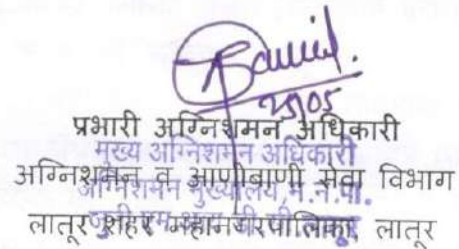 25/05
प्रभारी अग्निशमन अधिकारी
मुख्य अग्निशमन अधिकारी
अग्निशमन व आणीबाणी सेवा विभाग
अग्निशमन मुख्यालय, म.न.पा.
लातूर शहर महानगरपालिका, लातूर